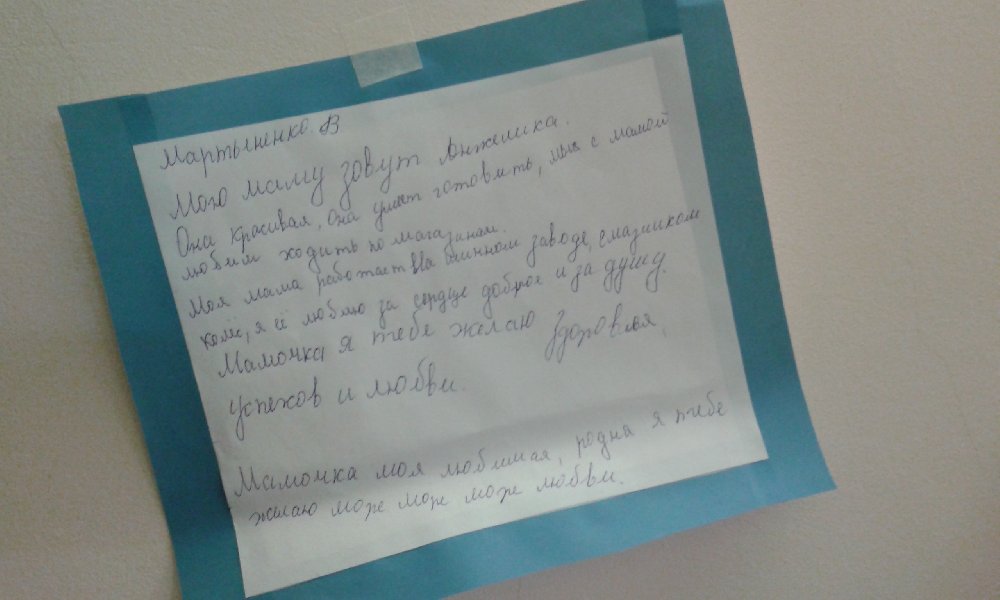 Мартыненко В
Мою маму зовут Анжелика.
Она красивая, она умеет готовить, мы с мамой
любим ходить по магазинам.
Моя мама работает на блинном заводе,
я её люблю за сердце доброе и за душу.
Мамочка я тебе желаю здоровья,
успехов и любви.
Мамочка моя любимая, родна я тебе
желаю море море море любви.